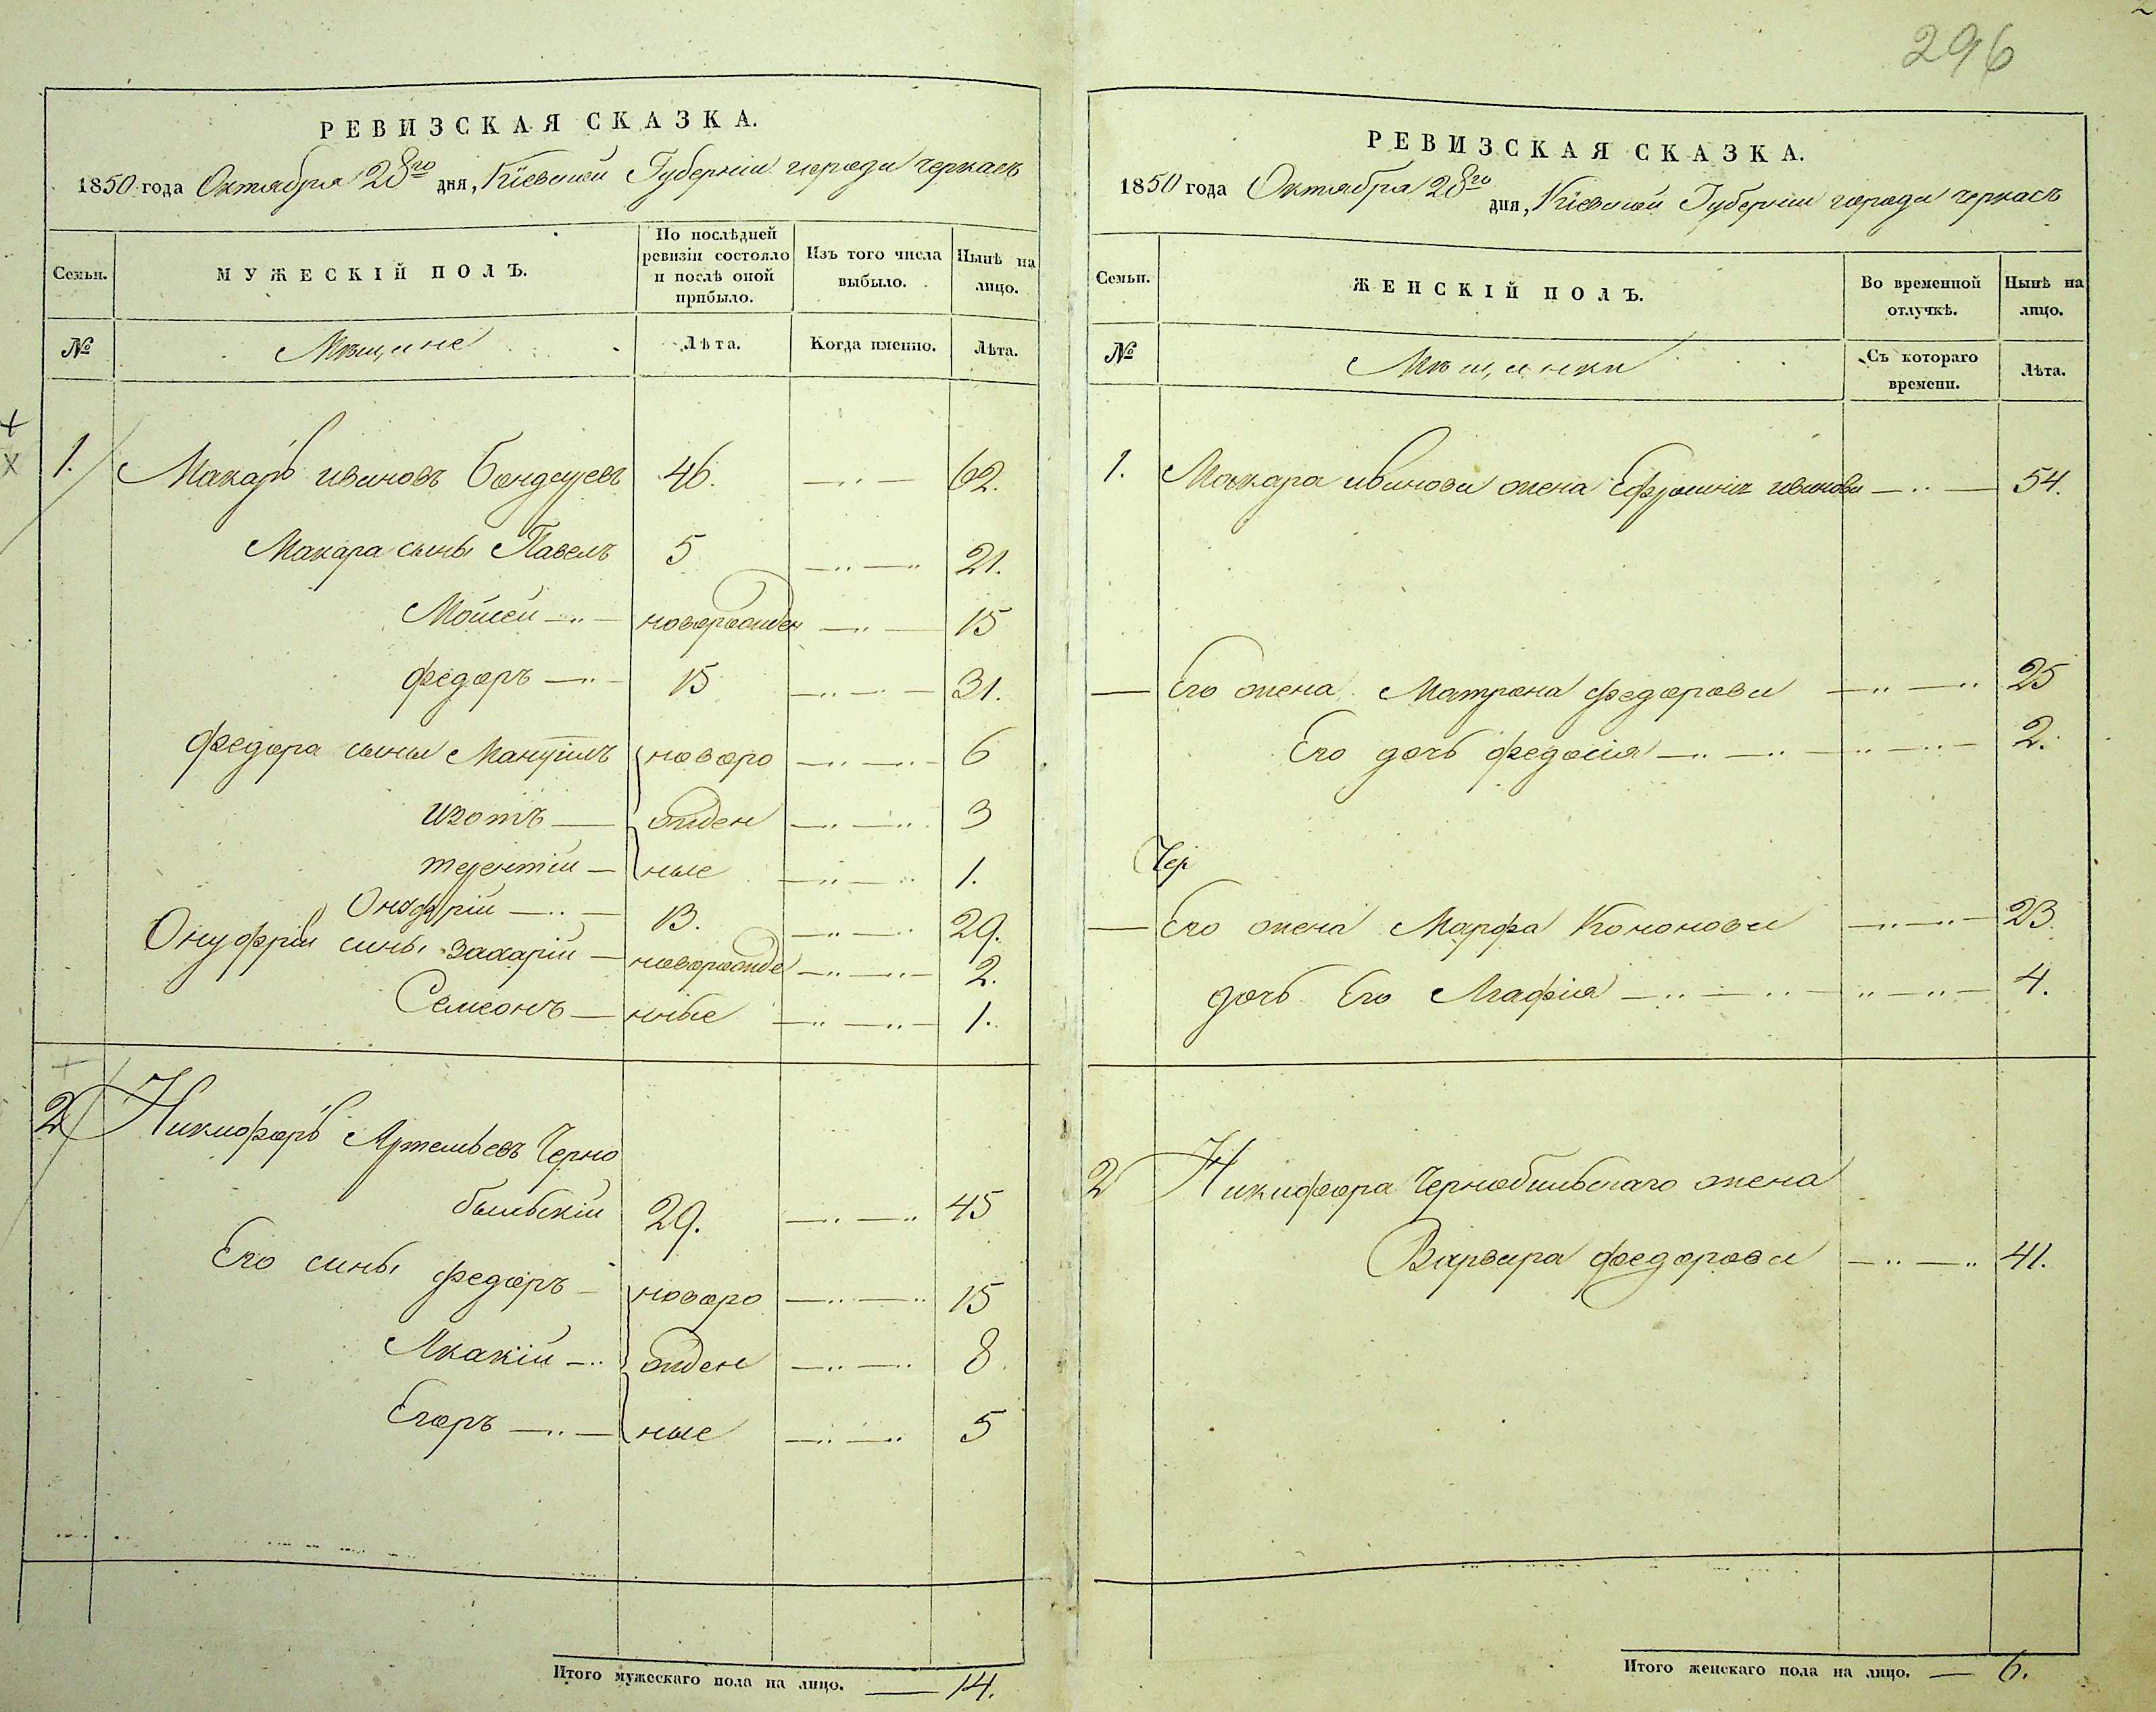 296
РЕВИЗСКАЯ СКАЗКА.
1850 года Октября 28го дня, Кіевской Губерніи города Черкасъ
Семьи.
МУЖЕСКІЙ ПОЛЪ.
По послѣдней ревизіи состояло и послѣ оной прибыло.
Изъ того числа выбыло.
Нынѣ на лицо.
№
Мещане
Лѣта.
Когда именно.
Лѣта.
1. Макаръ Ивановъ 46. 62.
Макара сыны Павелъ 5 21.
Мойсей новорожден 15
Федоръ 15 31.
Федора сыны Мануилъ новоро 6
Изотъ жден 3
Терентій ные 1.
Онуфрій 13. 29.
Онуфрія сыны Захарій новорожде 2.
Семеонъ нные 1.
2 Никифоръ Артемьевъ Черно
быльскій 29. 45
Его сыны Федоръ новоро 15
Акакій жден 8
Егоръ ные 5
Итого мужескаго пола на лицо. 14.
РЕВИЗСКАЯ СКАЗКА.
1850 года Октября 28го дня, Кіевской Губерніи города Черкасъ
Семьи.
ЖЕНСКІЙ ПОЛЪ.
Во временной отлучкѣ.
Нынѣ на лицо.
№
Мещанки
Съ котораго времени.
Лѣта.
1. Макара Иванова жена Ефросинія Иванова 54.
Его жена Матрона Федорова 25
Его дочь Федосія 2.
Чер
Его жена Марфа Кононова 23.
дочь Его Агафія 4.
2 Никифора Чернобыльскаго жена
Варвара Федорова 41.
Итого женскаго пола на лицо. 6.